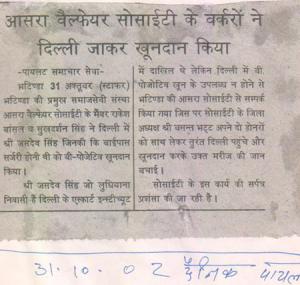 आसरा वैल्फेयर सोसाईटी के वर्करों ने
दिल्ली जाकर खूनदान किया
–पायलट समाचार सेवा–
भटिण्डा 31 अक्तूबर (स्टाफर)
भटिण्डा की प्रमुख समाजसेवी संस्था
आसरा वैल्फेयर सोसाईटी के मैंबर राकेश
बांसल व सुखदर्शन सिंह ने दिल्ली में
श्री जसदेव सिंह जिनकी कि बाईपास
सर्जरी होनी थी को बी-पोजेटिव खूनदान
किया।
श्री जसदेव सिंह जो लुधियाना
निवासी हैं दिल्ली के एस्कार्ट इंस्टीच्यूट
में दाखिल थे लेकिन दिल्ली में बी.
पोजीटिव खून के उपलब्ध न होने से
भटिण्डा की आसरा सोसाईटी से सम्पर्क
किया गया जिस पर सोसाईटी के जिला
अध्यक्ष श्री भट्ट अपने दो डोनरों
को साथ लेकर तुरंत दिल्ली पहुंचे और
खूनदान करके उक्त मरीज की जान
बचाई।
सोसाईटी के इस कार्य की सर्वत्र
प्रशंसा की जा रही है।
31.10.02 दैनिक पायल